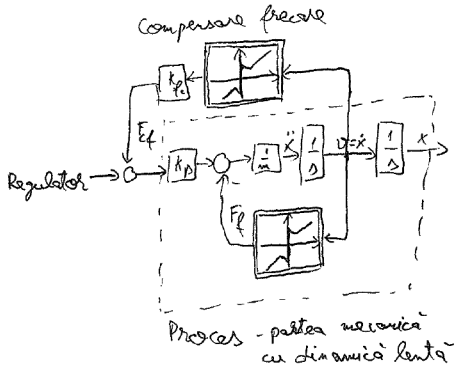 Compensare frecare
K_fc
E_f
Regulator
K_p
1/m
ẍ
1/s
v=ẋ
1/s
x
F_f
Proces - partea mecanică
cu dinamică lentă